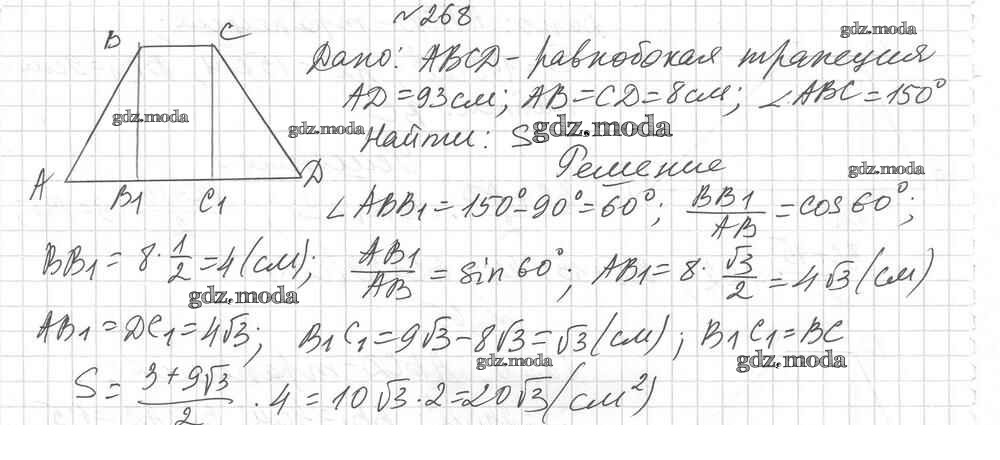 №268
B C gdz.moda
Дано: ABCD - равнобокая трапеция
AD = 93 см; AB = CD = 8 см; ∠ABC = 150°
gdz.moda gdz.moda Найти: S gdz.moda
Решение gdz.moda
A B1 C1 D
∠ABB1 = 150° - 90° = 60°; BB1/AB = cos 60°;
BB1 = 8 · 1/2 = 4 (см); AB1/AB = sin 60°; AB1 = 8 · √3/2 = 4√3 (см)
gdz.moda
AB1 = DC1 = 4√3; B1C1 = 9√3 - 8√3 = √3 (см); B1C1 = BC
gdz.moda gdz.moda
S = 3 + 9√3/2 · 4 = 10√3 · 2 = 20√3 (см²)